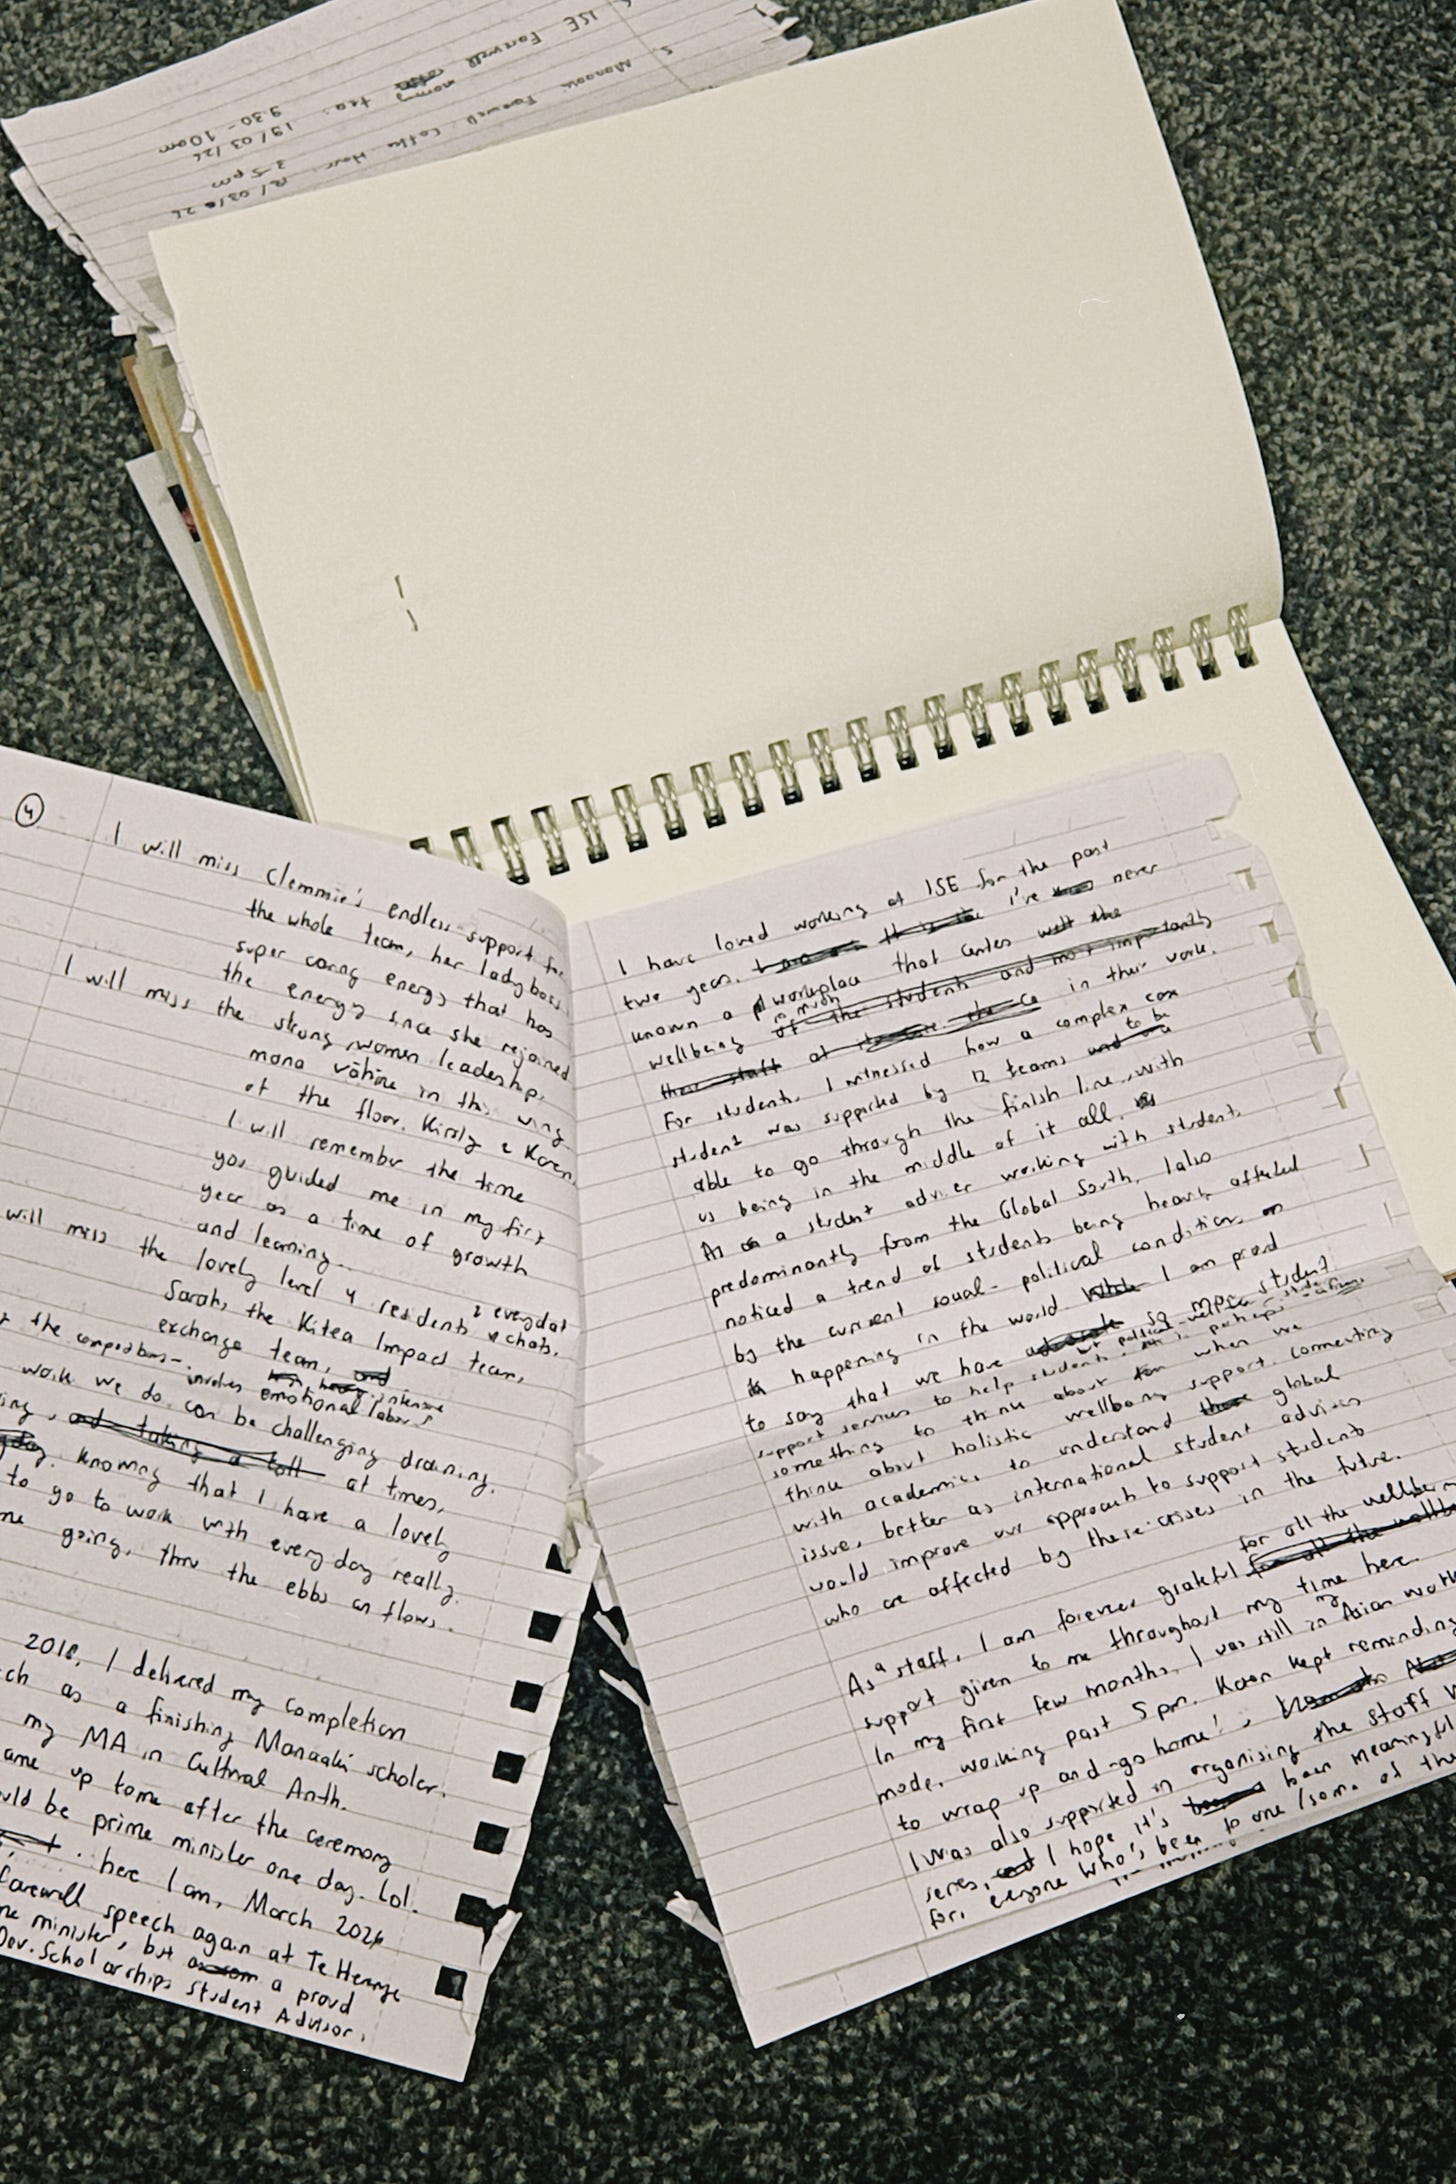 ISE Farewell morning tea:
19/03/26
9.30 - 10am
Manaaki Farewell Coffee Hour:
3-5pm
4
I will miss Clemmie's endless support for
the whole team, her lady boss
super caring energy that has
the energy since she rejoined
I will miss the strong women leadership,
mana vāhine in this wing
of the floor. Kirsty & Karen,
I will remember the time
you guided me in my first
year as a time of growth
and learning.
will miss the lovely level 4 residents & everyday chats,
Sarah, the Kitea Impact team,
exchange team, and
the involves intensive
emotional labour
work we do can be challenging draining.
and taking a toll at times,
day. Knowing that I have a lovely
to go to work with every day really
me going, thru the ebbs an flows.
2018, I delivered my completion
as a finishing Manaaki scholar.
my MA in Cultural Anth.
came up to me after the ceremony
be prime minister one day. Lol.
here I am, March 2026
farewell speech again at Te Herenga
minister, but a proud
Dev. Scholarships Student Advisor.
I have loved working at ISE for the past
two years. It is the I've never
known a workplace that centers the
wellbeing of the students and most importantly
their staff at in their work.
For students, I witnessed how a complex case
student was supported by 12 teams to be
able to go through the finish line, with
us being in the middle of it all.
As a student adviser working with students
predominantly from the Global South, I also
noticed a trend of students being heavily affected
by the current soual-political conditions
happening in the world. While I am proud
to say that we have so many student
support services to help students,
something to think about for when we
think about holistic wellbeing support. Connecting
with academics to understand these global
issues better as international student advisers
would improve our approach to support students
who are affected by these crises in the future.
for all the wellbeing
As a staff, I am forever grateful
support given to me throughout my time here.
In my first few months, I was still in my Asian work
mode, working past 5pm. Karen kept reminding
to wrap up and 'go home!',
I was also supported in organising the staff
series, and I hope it's been meaningful
for everyone who's been to one/some of the